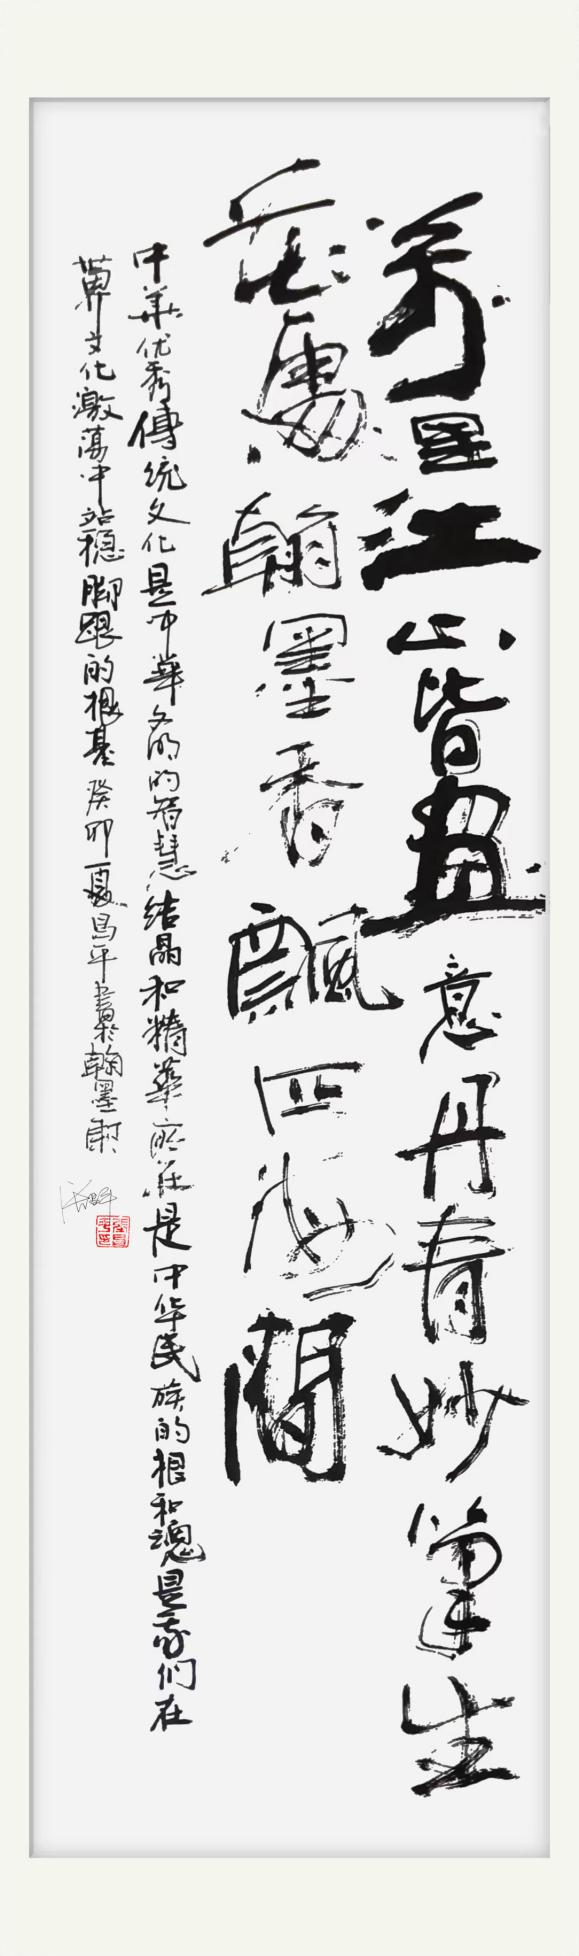 万里江山皆画意丹青妙笔生
花处翰墨香飘四海间
中华优秀傳统文化是中華文明的智慧结晶和精華所在是中华民族的根和魂是我们在
世界文化激荡中站稳脚跟的根基癸卯夏昌平書於翰墨軒